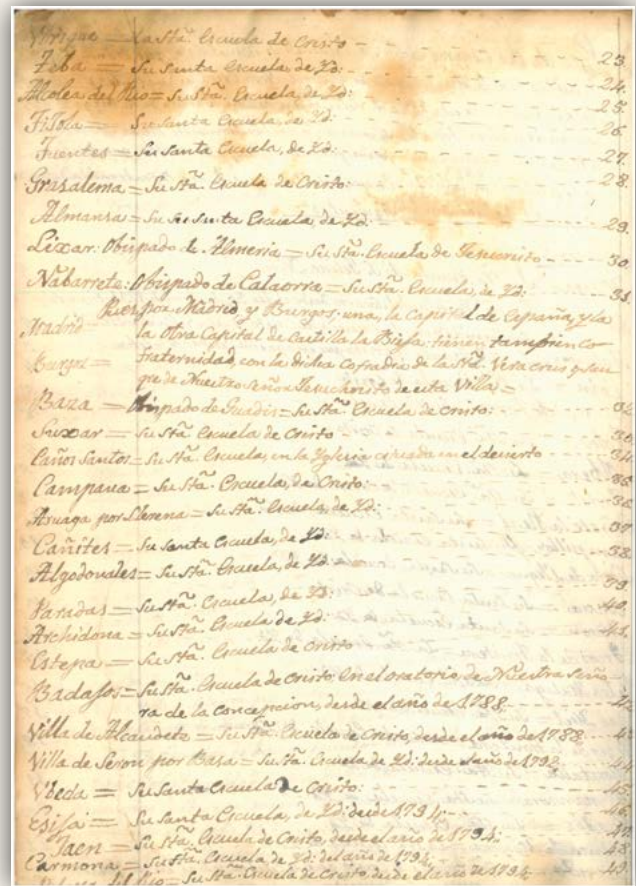 = La Stã. Escuela de Cristo - - -
Teba = Su Santa Escuela, de Yd: - - - 23
Alcolea del Rio = Su Stã. Escuela, de Yd: - - - 24.
= Su Santa Escuela, de Yd: - - - 25.
Fuentes = Su Santa Escuela, de Yd: - - - 27.
Grasalema = Su Stã. Escuela de Cristo: - - - 28.
Almansa = Su Santa Escuela de Yd: - - - 29.
Lixar: Obispado de Almeria = Su Stã. Escuela de Jesucristo - - 30.
Nabarrete: Obispado de Calaorra = Su Stã. Escuela, de Yd: - - 31.
Madrid por Madrid y Burgos: una, la Capital de España, y la
la Otra Capital de Castilla la Bieja: tienen tambien co
Burgos = fraternidad, con la dicha cofradia de la Stã. Vera cruz y san
gre de Nuestro Señor Jesuchristo de esta Villa =
Baza = Obispado de Guadis = Su Stã. Escuela de Cristo: - - -
Suxar = Su Stã. Escuela de Cristo - - -
Caños Santos = Su Stã. Escuela, en la Yglesia en el decierto - - - 34.
Campana = Su Stã. Escuela, de Cristo: - - - 35.
Asuaga por Llerena = Su Stã. Escuela, de Yd: - - - 36.
Cañites = Su Santa Escuela, de Yd: - - - 37
Algodonales = Su Stã. Escuela, de Yd: - - - 38.
Paradas = Su Stã. Escuela, de Yd: - - - 39.
Archidona = Su Stã. Escuela de Yd: - - - 40.
Estepa = Su Stã. Escuela de Cristo - - - 41.
Badajos = Su Stã. Escuela de Cristo: En el oratorio, de Nuestra Seño
ra de la Concepcion, desde el año de 1788. - - - 42
Villa de Alcaudete = Su Stã. Escuela de Cristo, desde el año de 1788 - - 43
Villa de Seron por Basa = Su Stã. Escuela de Yd: desde el año de 1792 - - 44
Vbeda = Su Santa Escuela De Cristo: - - - 45
= Su Santa Escuela, de Yd: desde 1794; - - - 46.
Jaen = Su Stã. Escuela de Cristo, desde el año de 1794; - - - 47.
Carmona = Su Stã. Escuela, de Yd: del año de 1794; - - - 48.
del Rio = Su Stã. Escuela de Cristo, desde el año de 1794 - - - 49.